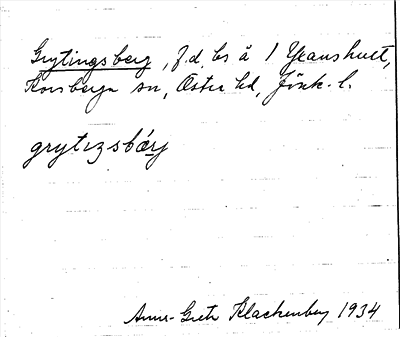 Grytingsberg, f.d. bs å 1 Yxanshult,
Korsberga sn, Östra hd, Jönk. l.
grytıŋsbærj
Anna-Greta Klackenberg 1934